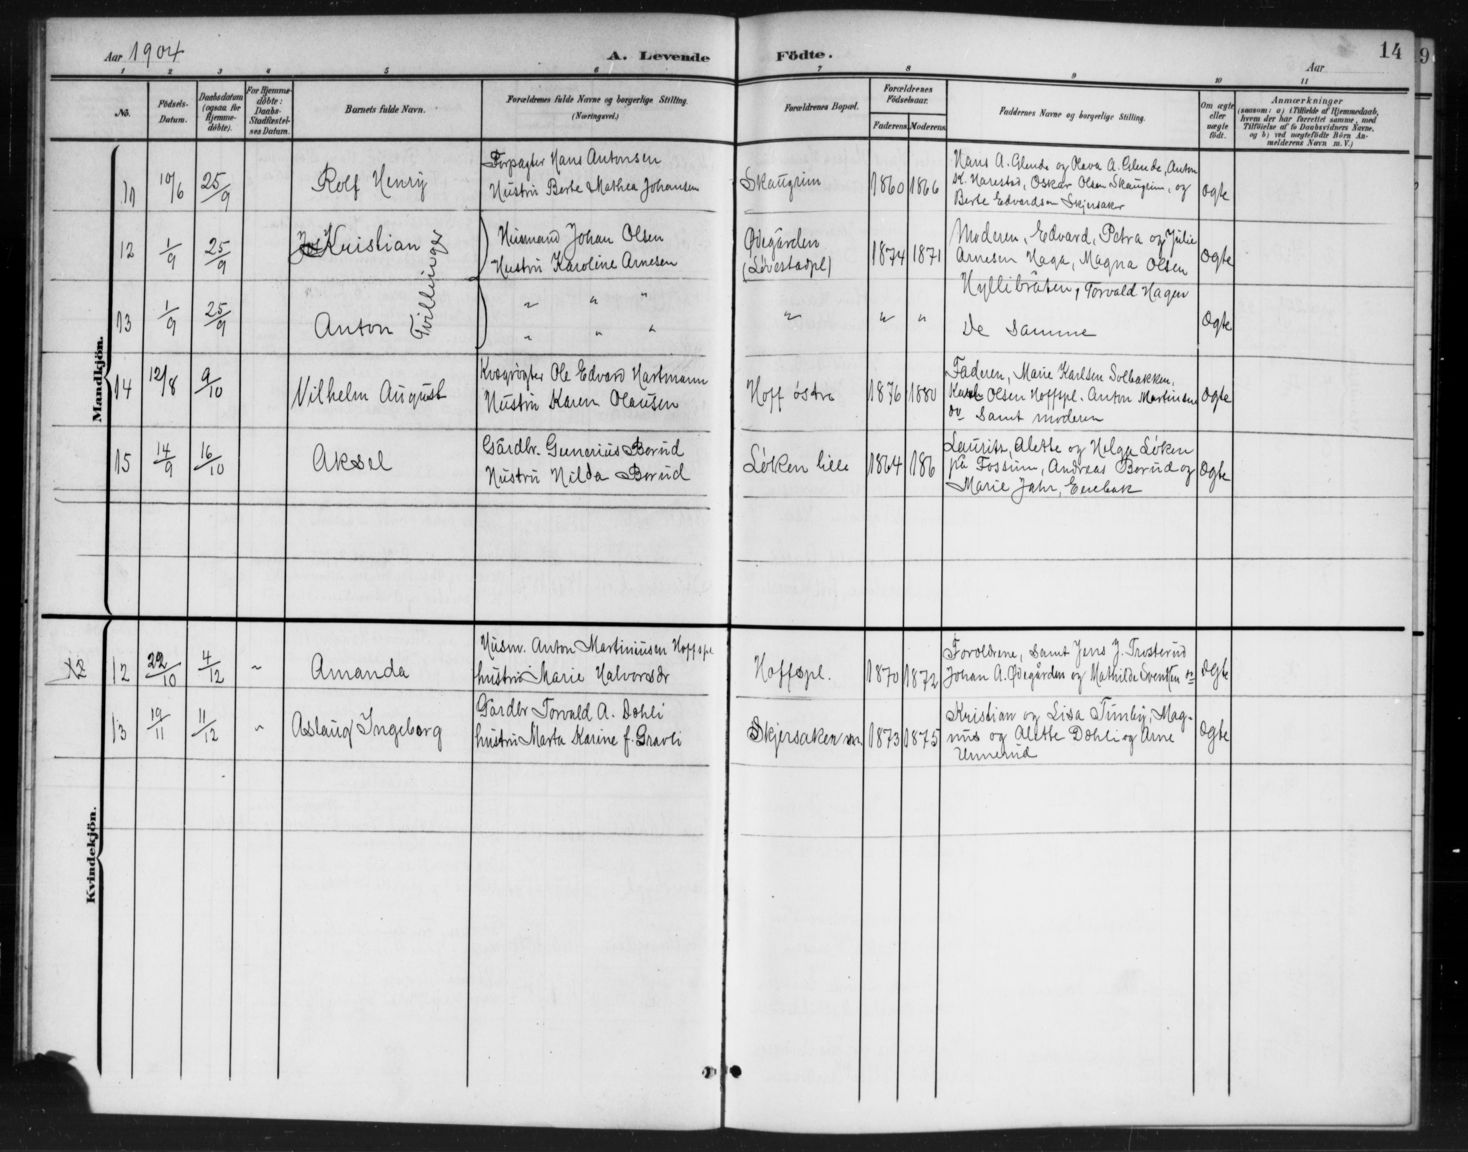 Aar 1904
A. Levende Födte.
14
Aar
1 2 3 4 5 6 7 8 9 10 11
No.
Födsels-
Datum.
Daabsdatum
(ogsaa for
Hjemme-
døbte).
For Hjemme-
døbte:
Daabs-
Stadfæstel-
ses Datum.
Barnets fulde Navn.
Forældrenes fulde Navne og borgerlige Stilling.
(Næringsvei.)
Forældrenes Bopæl.
Forældrenes
Födselsaar.
Faderens. Moderens.
Faddernes Navne og borgerlige Stilling.
Om ægte
eller
uægte
født.
Anmærkninger
(saasom: a) i Tilfælde af Hjemmedaab,
hvem der har forrettet samme, med
Tilföielse af to Daabsvidners Navne,
og b) ved uægtefödte Börn An-
melderens Navn m. V.)
Mandkjön.
11 10/6 25/9 Rolf Henry
Forpagter Hans Antonsen
Hustru Berte Mathea Johansen
Skaugrim 1860 1866
Hans A. Glende og Olava A. Glende, Anton
K. Harestad, Oskar Olsen Skaugrim, og
Berte Edvardsen Skjersaker
Øgte
12 1/9 25/9 Kristian
Tvillinger
Husmand Johan Olsen
Hustru Karoline Arnesen
Ødegården
(Løvestadpl)
1874 1871
Moderen, Edvard, Petra og Julie
Arnesen Haga, Magna Olsen
Hyllibråten, Torvald Hagen
Øgte
13 1/9 25/9 Anton
" " "
" " "
" " "
De samme
Øgte
14 12/8 9/10 Vilhelm August
Kvægrøgter Ole Edvard Hartmann
Hustru Karen Olausen
Hoff østre 1876 1880
Faderen, Marie Karlsen Solbakken,
Karl Olsen Hoffspl. Anton Martinsen
samt moderen
Øgte
15 14/9 16/10 Aksel
Gårdbr. Gunerius Borud
Hustru Hilda Borud
Løken lille 1864 186
Lauritz, Alette og Helga Løken
på Fossum, Andreas Borud og
Marie Jahr, Enebak
Øgte
Kvindekjön.
12 12 22/10 4/12 " Amanda
Husm. Anton Martiniusen Hoffspl
hustru Marie Halvorsdr
Hoffspl. 1870 1872
Foroldrene, samt Jens J. Trosterud
Johan A. Ødegården og Mathilde Svensen
Øgte
13 19/11 11/12 " Aslaug Ingeborg
Gårdbr Torvald A. Dohli
hustru Marta Karine f. Gravli
Skjersaken 1873 1875
Kristian og Lisa Tumby, Mag-
nus og Alette Dohli og Arne
Unnerud
Øgte